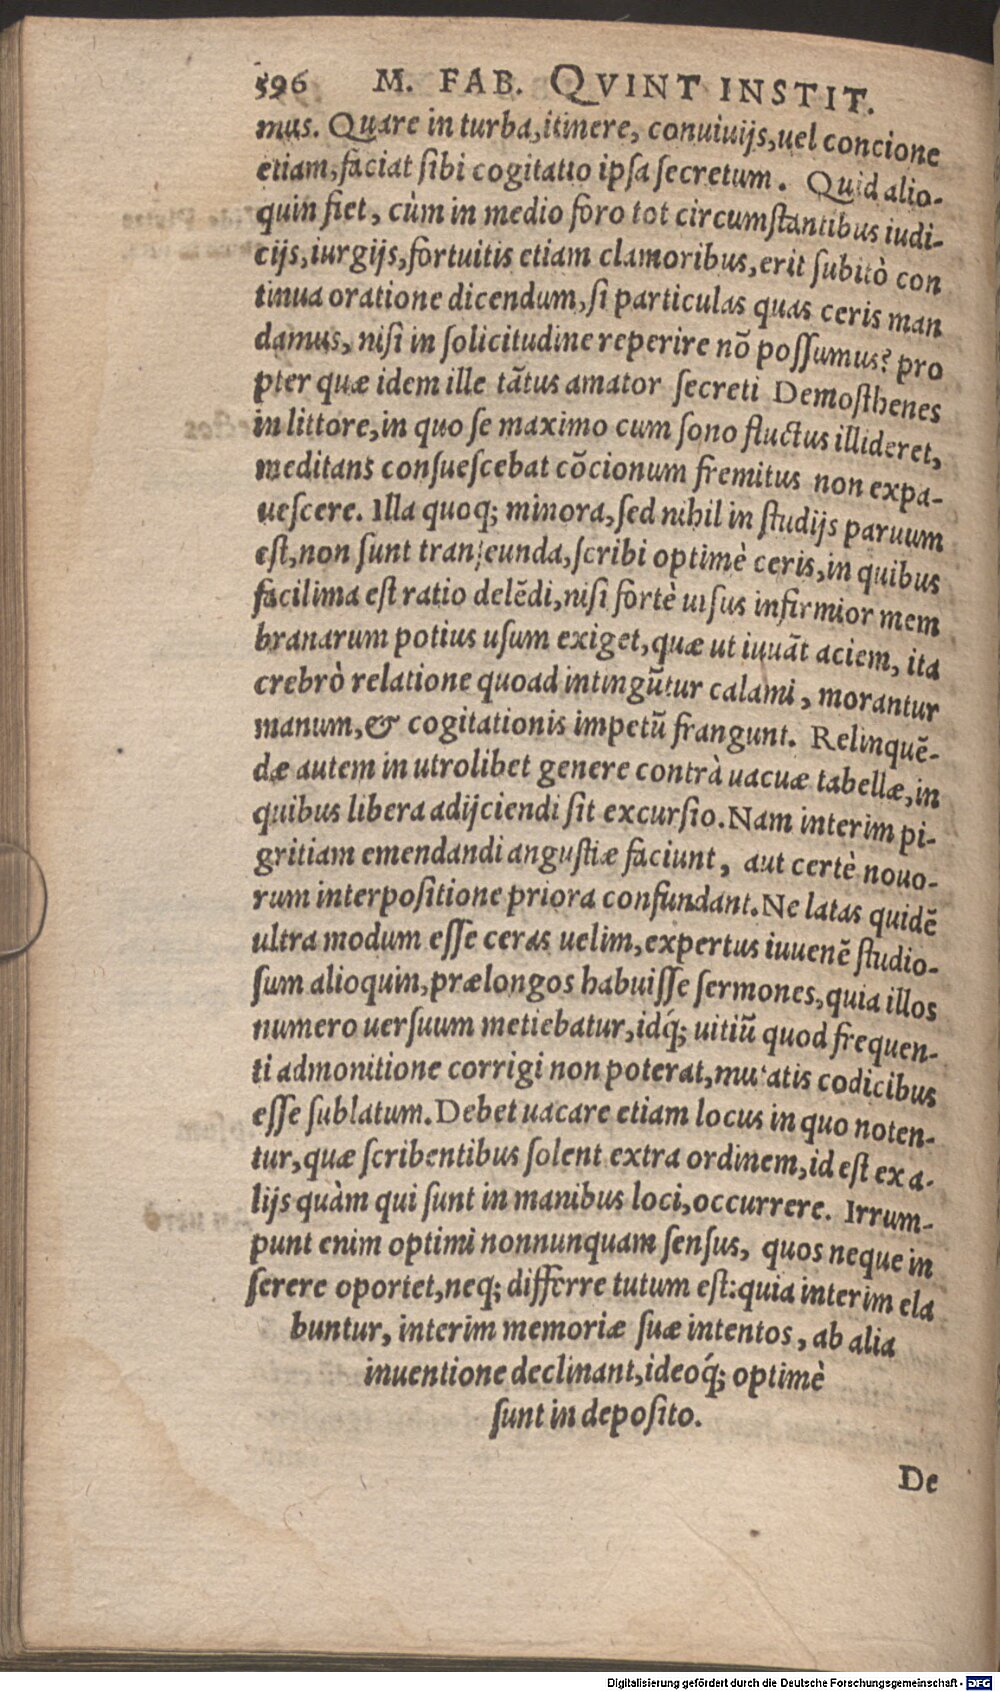 596 M. FAB. QVINT INSTIT.
mus. Quare in turba, itinere, conuiuijs, uel concione
etiam, faciat sibi cogitatio ipsa secretum. Quid alio-
quin fiet, cùm in medio foro tot circumstantibus iudi-
cijs, iurgijs, fortuitis etiam clamoribus, erit subitò con
tinua oratione dicendum, si particulas quas ceris man
damus, nisi in solicitudine reperire nõ possumus? pro
pter quæ idem ille tãtus amator secreti Demosthenes
in littore, in quo se maximo cum sono fluctus illideret,
meditans consuescebat cõcionum fremitus non expa-
uescere. Illa quoq; minora, sed nihil in studijs paruum
est, non sunt transeunda, scribi optimè ceris, in quibus
facilima est ratio delẽdi, nisi fortè uisus infirmior mem
branarum potius usum exiget, quæ ut iuuãt aciem, ita
crebrò relatione quoad intingũtur calami, morantur
manum, & cogitationis impetũ frangunt. Relinquẽ-
dæ autem in utrolibet genere contrà uacuæ tabellæ, in
quibus libera adijciendi sit excursio. Nam interim pi-
gritiam emendandi angustiæ faciunt, aut certè nouo-
rum interpositione priora confundant. Ne latas quidẽ
ultra modum esse ceras uelim, expertus iuuenẽ studio-
sum alioquin, prælongos habuisse sermones, quia illos
numero uersuum metiebatur, idq́; uitiũ quod frequen-
ti admonitione corrigi non poterat, mutatis codicibus
esse sublatum. Debet uacare etiam locus in quo noten-
tur, quæ scribentibus solent extra ordinem, id est ex a-
lijs quàm qui sunt in manibus loci, occurrere. Irrum-
punt enim optimi nonnunquam sensus, quos neque in
serere oportet, neq; differre tutum est: quia interim ela
buntur, interim memoriæ suæ intentos, ab alia
inuentione declinant, ideoq́; optimè
sunt in deposito.
De
Digitalisierung gefördert durch die Deutsche Forschungsgemeinschaft - DFG